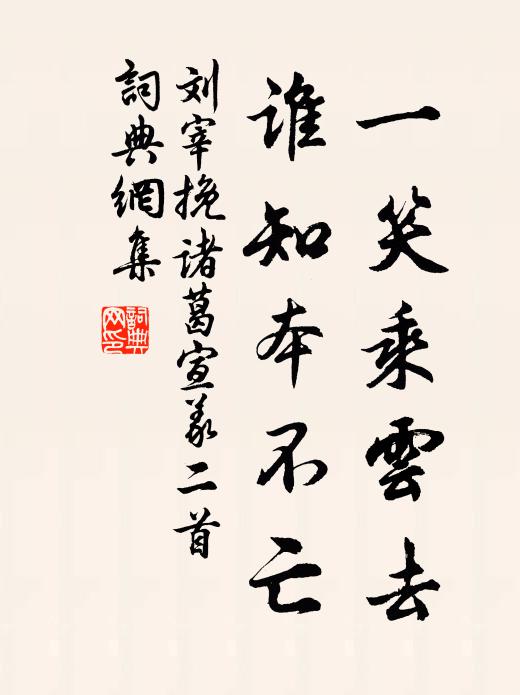 一笑乘雲去
誰知本不亡
刘宰挽诸葛宣義二首
詞典網集
詞典网印